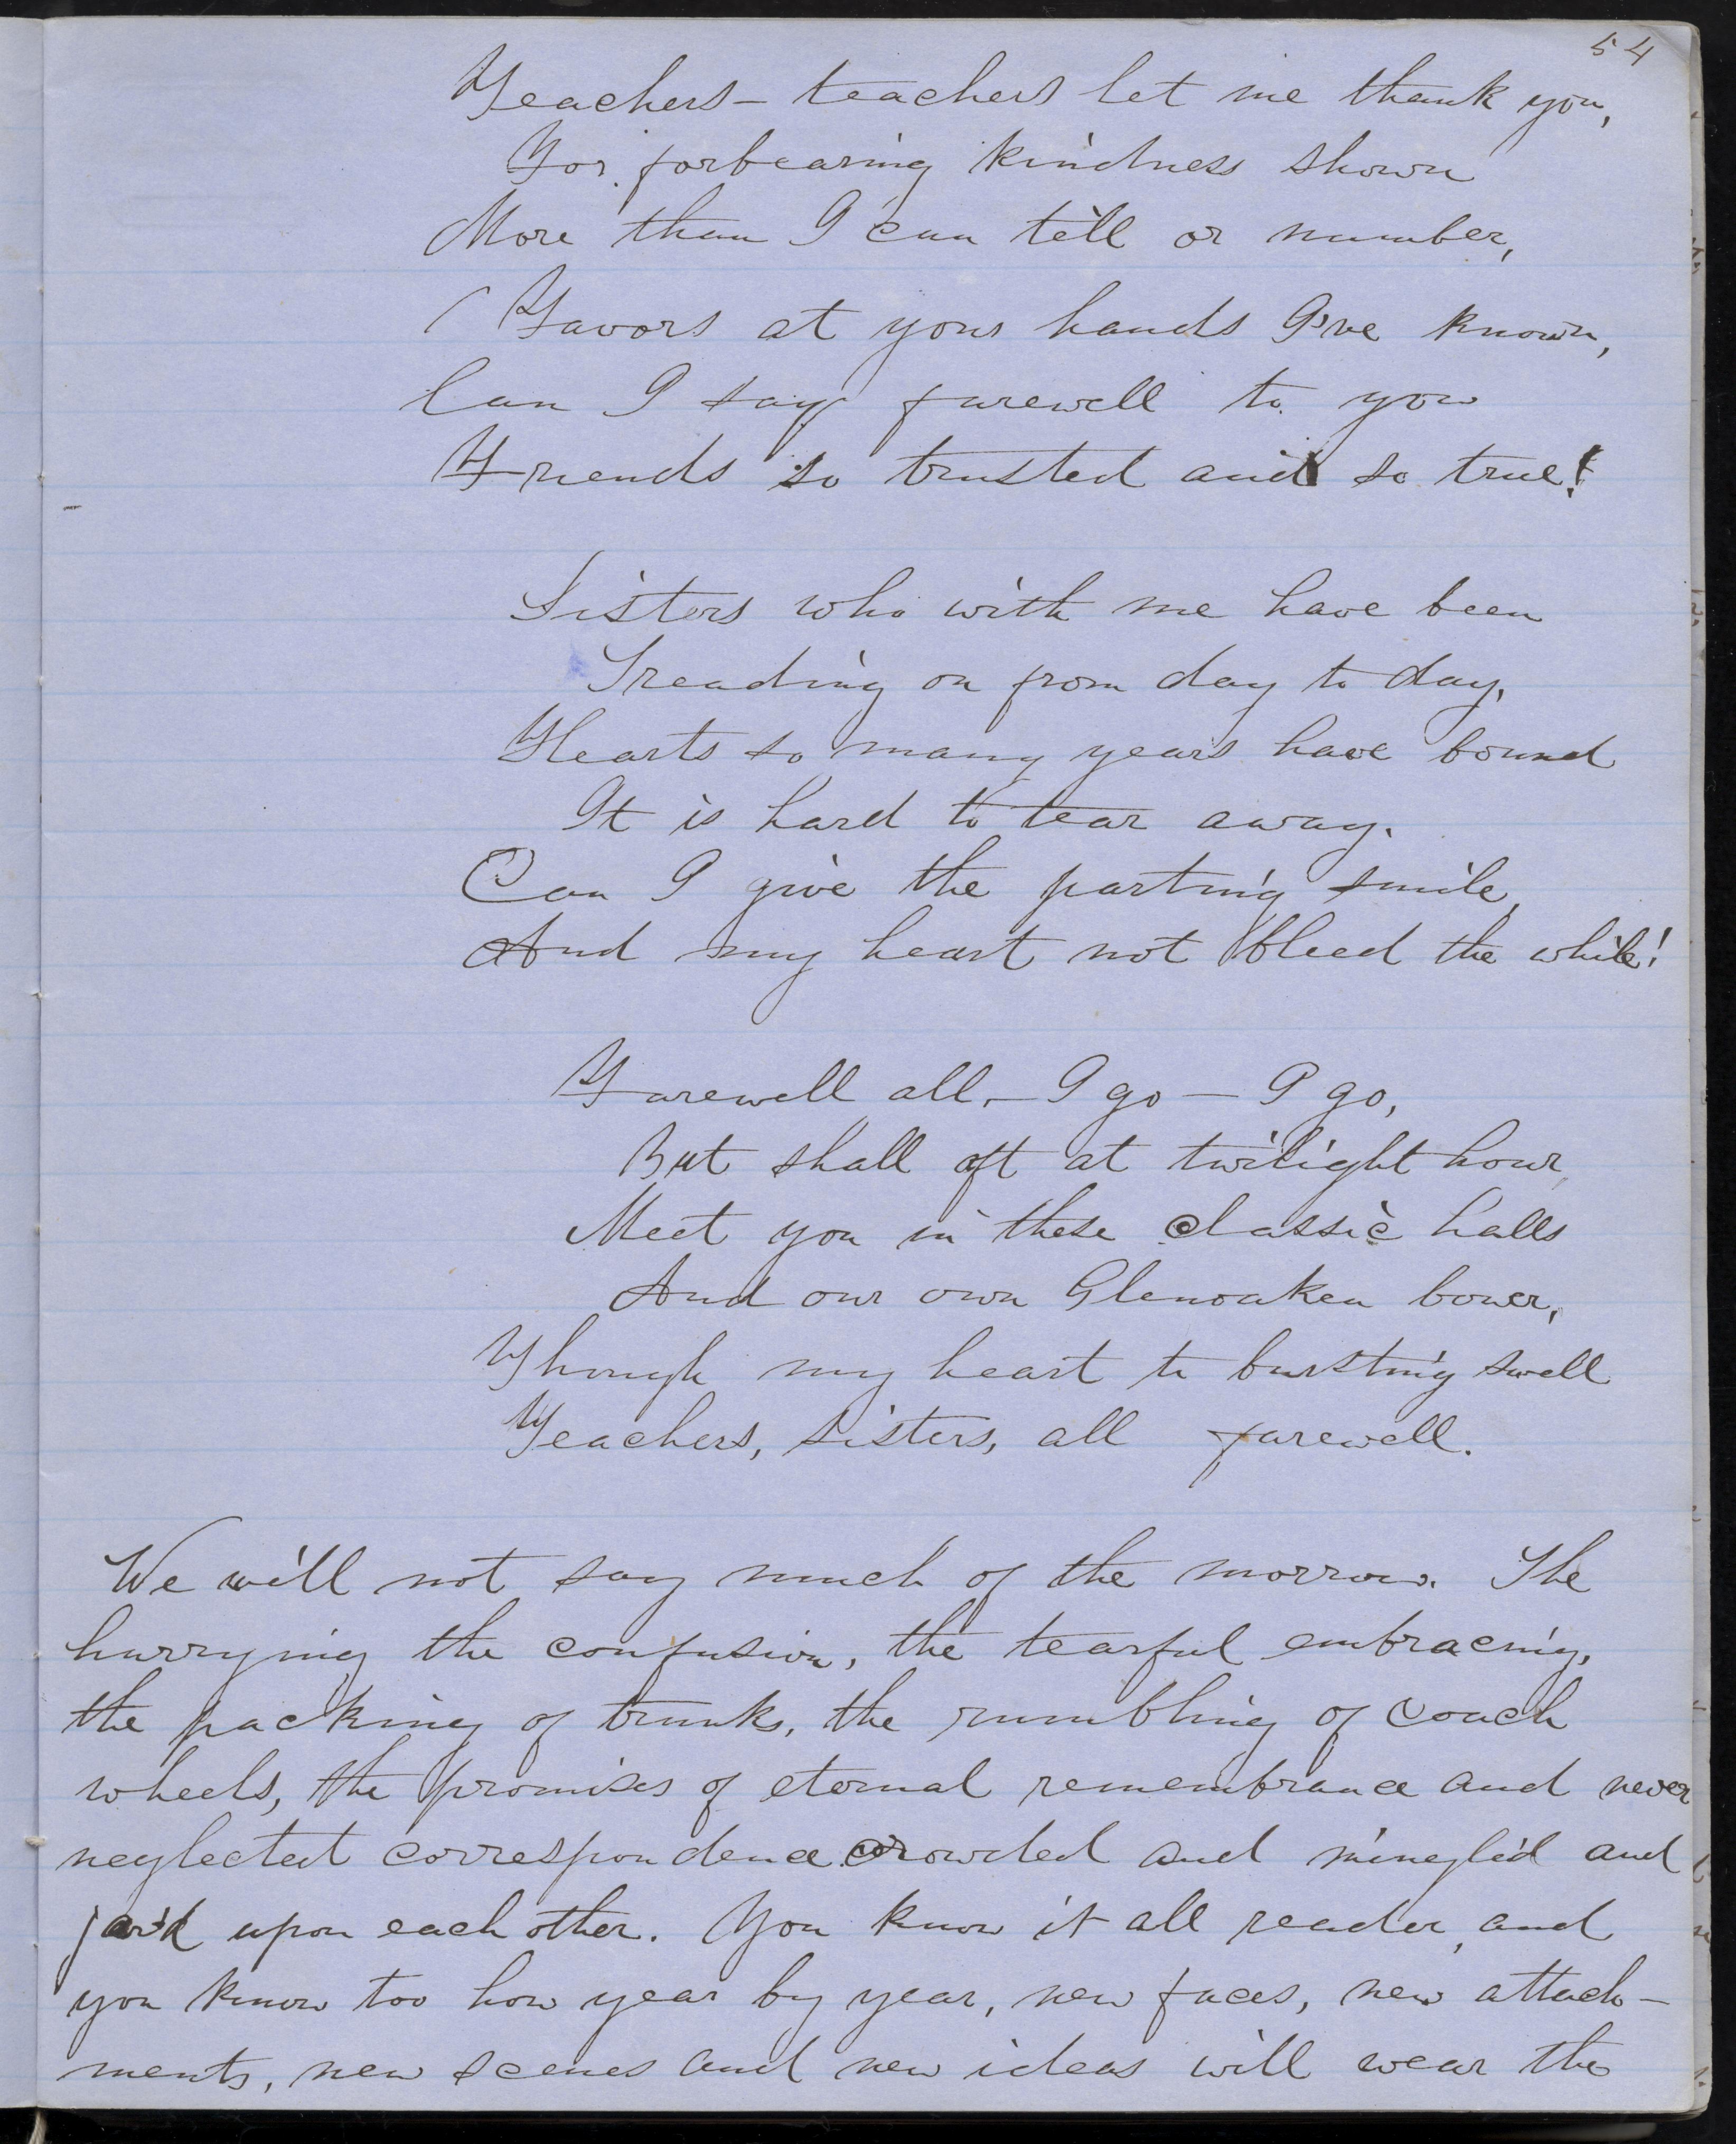 54
Teachers – teachers let me thank you,
For forbearing kindness shown
More than I can tell or number,
Favors at your hands I've known,
Can I say farewell to you
Friends so trusted and so true!
Sisters who with me have been
Treading on from day to day,
Hearts so many years have bound
It is hard to tear away.
Can I give the parting smile,
And my heart not bleed the while!
Farewell all, – I go – I go,
But shall oft at twilight hour,
Meet you in these classic halls
And our own Glenoaken bower,
Though my heart to bursting swell
Teachers, sisters, all farewell.
We will not say much of the morrow. The
hurrying the confusion, the tearful embracing,
the packing of trunks, the rumbling of coach
wheels, the promises of eternal remembrance and never
neglected correspondence crowded and mingled and
jar'd upon each other. You know it all reader, and
you know too how year by year, new faces, new attach-
ments, new scenes and new ideas will wear the